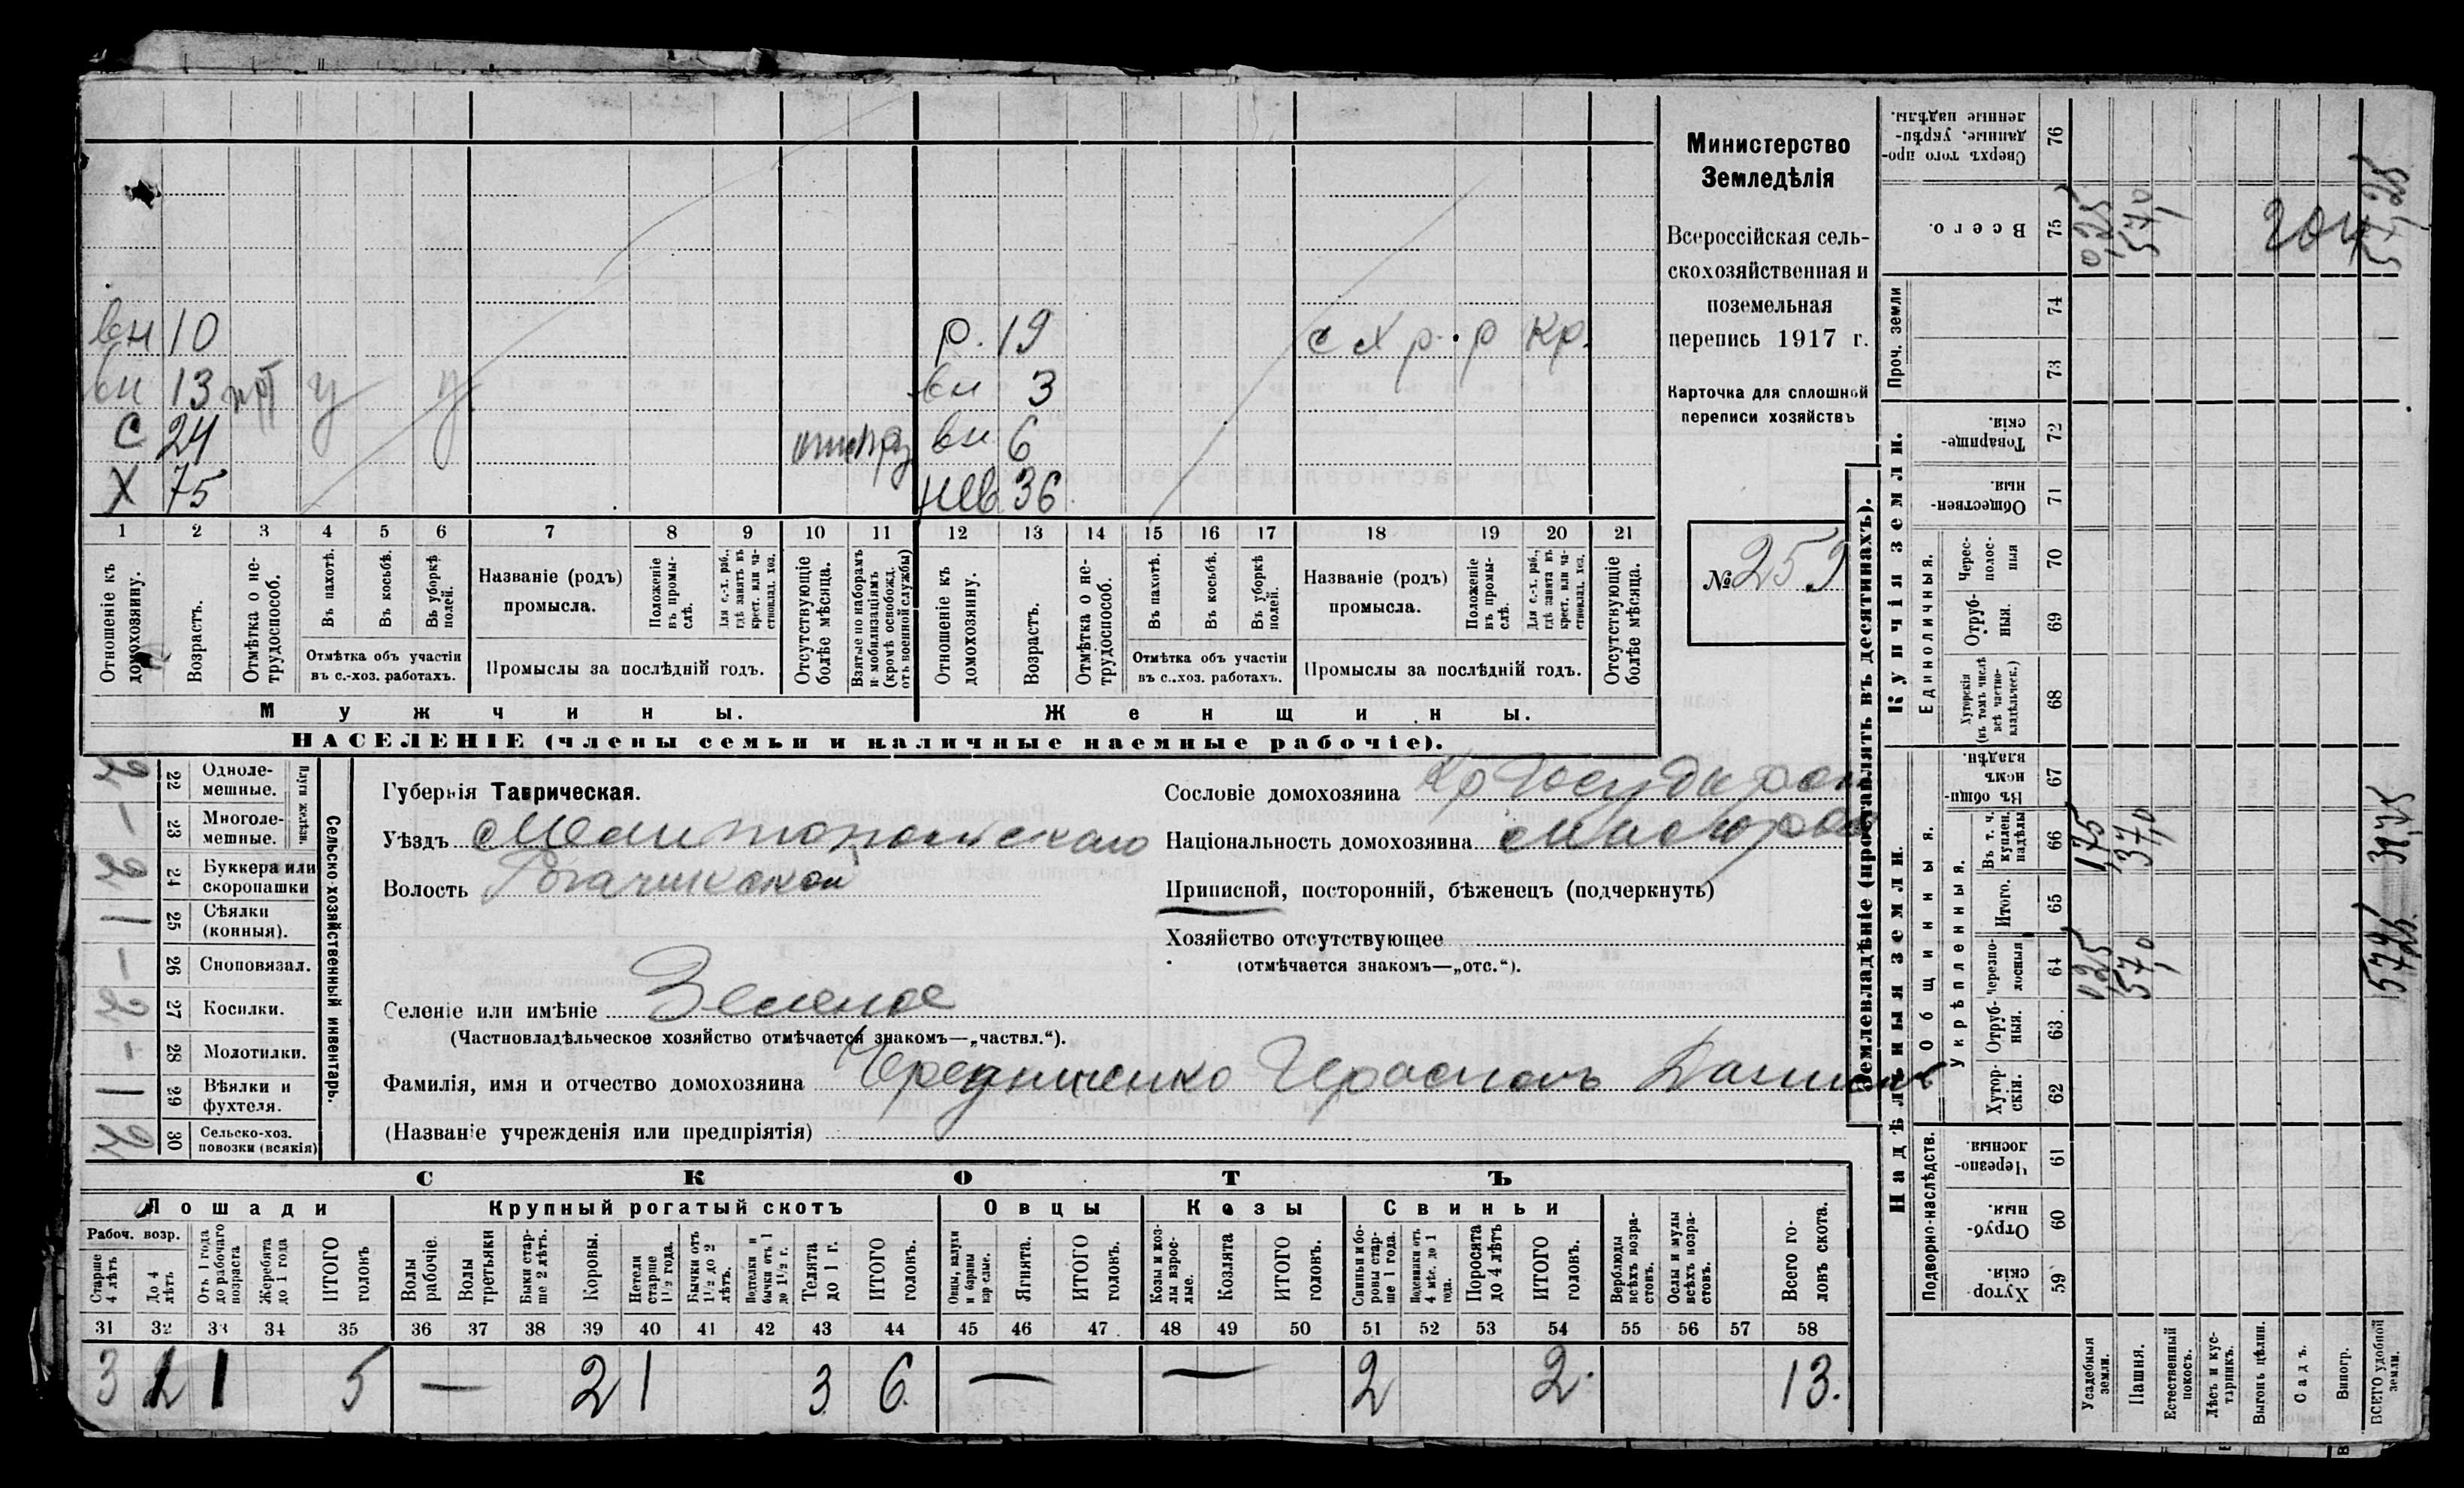 вн 10 р. 19 с х р. р кр.
вн 13 у у вн 3
с 24 вн 6
х 75 нев 36
1 2 3 4 5 6 7 8 9 10 11 12 13 14 15 16 17 18 19 20 21
Отношеніе къ домохозяину.
Возрастъ.
Отмѣтка о нетрудоспособ.
Въ пахотѣ.
Въ косьбѣ.
Въ уборкѣ полей.
Отмѣтка объ участіи
въ с.-хоз. работахъ.
Названіе (родъ)
промысла.
Положеніе въ промыслѣ.
Для с.-х. раб., гдѣ занятъ въ крест. или частновлад. хоз.
Промыслы за послѣдній годъ.
Отсутствующіе болѣе мѣсяца.
Взятые по наборамъ и мобилизаціямъ (кромѣ освобожд. отъ военной службы)
Отношеніе къ домохозяину.
Возрастъ.
Отмѣтка о нетрудоспособ.
Въ пахотѣ.
Въ косьбѣ.
Въ уборкѣ полей.
Отмѣтка объ участіи
въ с.-хоз. работахъ.
Названіе (родъ)
промысла.
Положеніе въ промыслѣ.
Для с.-х. раб., гдѣ занята въ крест. или частновлад. хоз.
Промыслы за послѣдній годъ.
Отсутствующіе болѣе мѣсяца.
Мужчины. Женщины.
НАСЕЛЕНІЕ (члены семьи и наличные наемные рабочіе).
Министерство
Земледѣлія
Всероссійская сель-
скохозяйственная и
поземельная
перепись 1917 г.
Карточка для сплошной
переписи хозяйствъ
№ 259
Сельско-хозяйственный инвентарь.
Плуги желѣзн.
2 22 Одноле-
мешные.
- 23 Многоле-
мешные.
2 24 Буккера или
скоропашки
1 25 Сѣялки
(конныя).
- 26 Сноповязал.
2 27 Косилки.
- 28 Молотилки.
1 29 Вѣялки и
фухтеля.
2 30 Сельско-хоз.
повозки (всякія)
Губернія Таврическая.
Уѣздъ Мелитопольскаго
Волость Рогачикской
Сословіе домохозяина
Національность домохозяина Малоросс
Приписной, посторонній, бѣженецъ (подчеркнуть)
Хозяйство отсутствующее
(отмѣчается знакомъ—„отс.“).
Селеніе или имѣніе Зеленое
(Частновладѣльческое хозяйство отмѣчается знакомъ—„частвл.“).
Фамилія, имя и отчество домохозяина Чередниченко Герасимъ Данил
(Названіе учрежденія или предпріятія)
СКОТЪ
Лошади Крупный рогатый скотъ Овцы Козы Свиньи
Рабоч. возр.
Старше 4 лѣтъ
До 4 лѣтъ
Отъ 1 года до рабочаго возраста
Жеребята до 1 года
ИТОГО головъ
Волы рабочіе.
Волы третьяки
Быки старше 2 лѣтъ.
Коровы.
Нетели старше 1½ года.
Бычки отъ 1½ до 2 лѣтъ.
Подтелки и бычки отъ 1 до 1½ г.
Телята до 1 г.
ИТОГО головъ.
Овцы, валухи и бараны взрослые.
Ягнята.
ИТОГО головъ.
Козы и козлы взрослые.
Козлята
ИТОГО головъ.
Свиньи и боровы старше 1 года.
Подсвинки отъ 4 мѣс. до 1 года.
Поросята до 4 лѣтъ
ИТОГО головъ.
Верблюды всѣхъ возрастовъ.
Ослы и мулы всѣхъ возрастовъ.
Всего головъ скота.
31 32 33 34 35 36 37 38 39 40 41 42 43 44 45 46 47 48 49 50 51 52 53 54 55 56 57 58
3 1 1 5 — 2 1 3 6 — — 2 2 13.
Землевладѣніе (проставлять въ десятинахъ).
Надѣльныя земли. Купчія земли. Проч. земли
Подворно-наслѣдств. Общинныя. Единоличныя.
Укрѣпленныя.
59 Хуторскія.
60 Отрубныя.
61 Черезполосныя.
62 Хуторскія.
63 Отрубныя.
64 Черезполосныя
65 Итого.
66 Въ т. ч. куплен. надѣлы
67 Въ общинномъ владѣн.
68 Хуторскія (въ томъ числѣ всѣ частновладѣльческ.)
69 Отрубныя.
70 Чересполосныя
71 Общественныя.
72 Товарищескія
73
74
75 Всего.
76 Сверхъ того проданные, укрѣпленные надѣлы.
Усадебныя земли. 0,25 1,75 0,25
Пашня. 57,0 37,0 57,0
Естественный покосъ.
Лѣсъ и кустарникъ.
Выгонъ цѣлин.
Садъ.
Виногр.
ВСЕГО удобной земли. 57,25 38,75 57,25